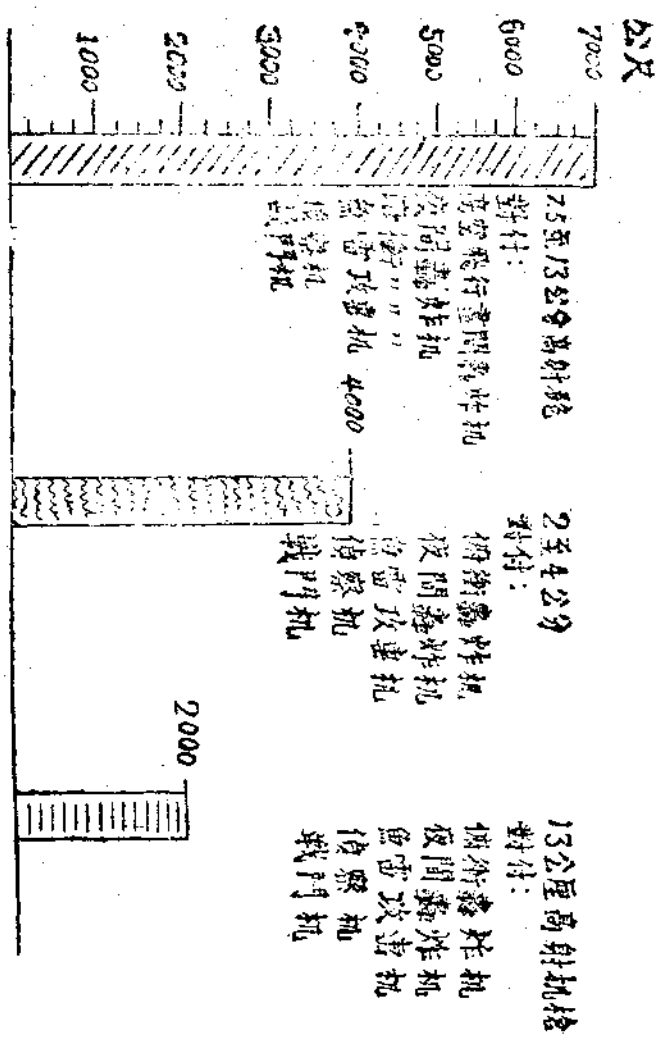 公尺
7000
6000
5000
4000
3000
2000
1000
7.5至13公分高射砲
對付:
高空飛行晝間轟炸机
夜間轟炸机
俯衝〃〃〃
魚雷攻擊机
偵察机
戰鬥机
4000
2至4公分
對付:
俯衝轟炸机
夜間轟炸机
魚雷攻擊机
偵察机
戰鬥机
2000
13公厘高射机槍
對付:
俯衝轟炸机
夜間轟炸机
魚雷攻击机
偵察机
戰鬥机